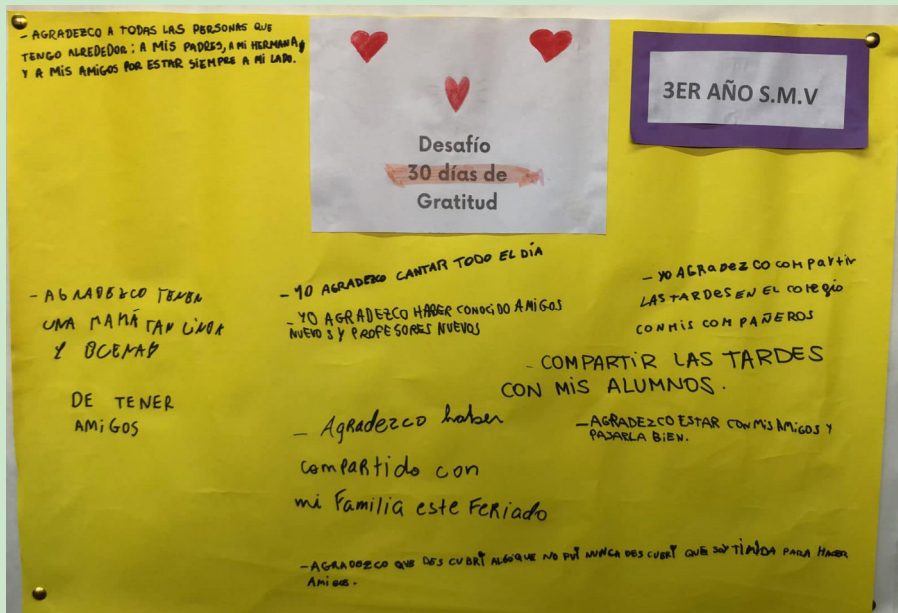 - AGRADEZCO A TODAS LAS PERSONAS QUE
TENGO ALREDEDOR: A MIS PADRES, A MI HERMANA,
Y A MIS AMIGOS POR ESTAR SIEMPRE A MI LADO.
Desafío
30 días de
Gratitud
3ER AÑO S.M.V
- AGRADEZCO TENER
UNA MAMÁ TAN LINDA
Y
DE TENER
AMIGOS
- YO AGRADEZCO CANTAR TODO EL DÍA
- YO AGRADEZCO HABER CONOCIDO AMIGOS
NUEVOS Y PROFESORES NUEVOS
- YO AGRADEZCO COMPARTIR
LAS TARDES EN EL COLEGIO
CON MIS COMPAÑEROS
- COMPARTIR LAS TARDES
CON MIS ALUMNOS.
- Agradezco haber
compartido con
mi Familia este Feriado
- AGRADEZCO ESTAR CON MIS AMIGOS Y
PASARLA BIEN.
- AGRADEZCO QUE DESCUBRÍ ALGO QUE NO FUI NUNCA DESCUBRÍ QUE SOY TÍMIDA PARA HACER
AMIGOS.